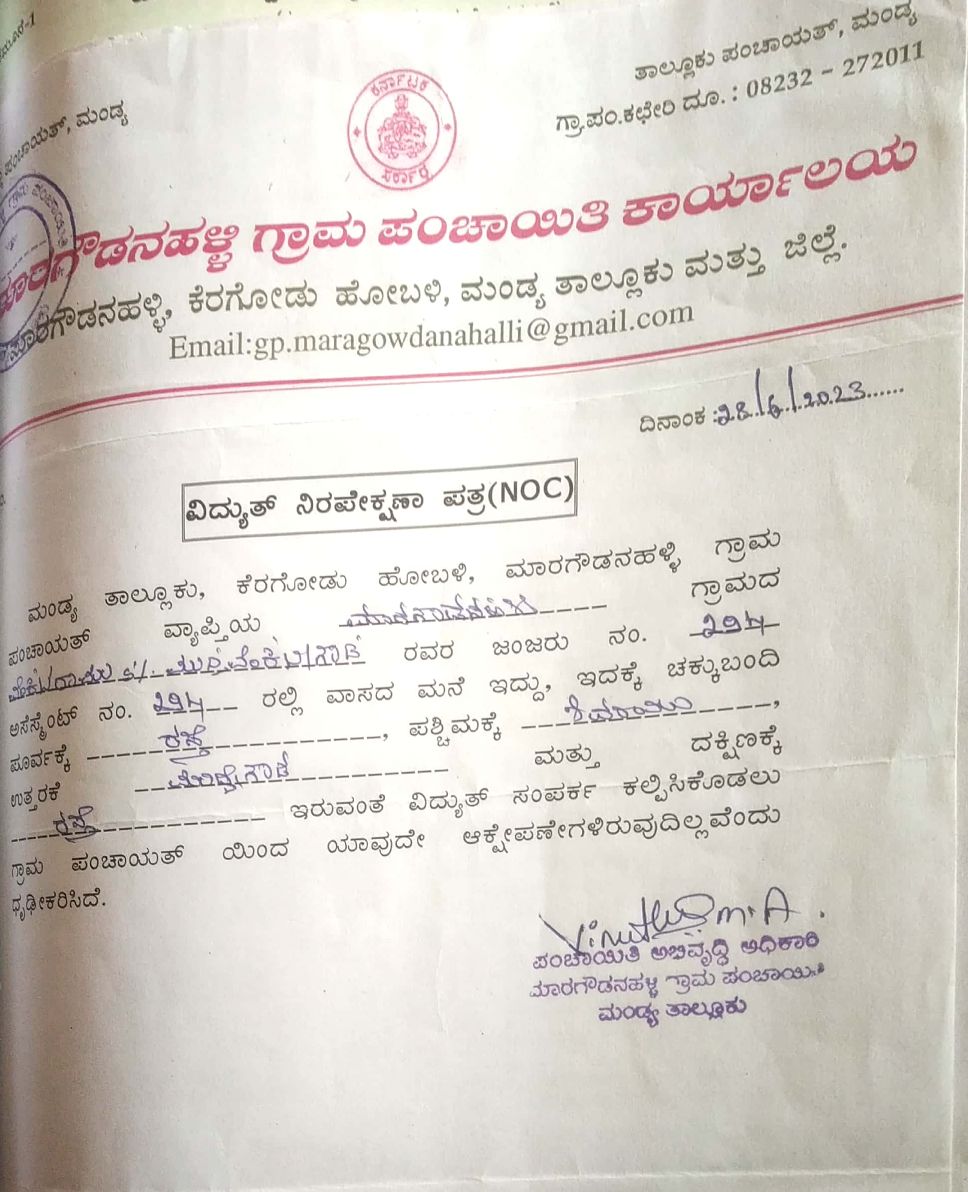 ತಾಲ್ಲೂಕು ಪಂಚಾಯತ್, ಮಂಡ್ಯ
ಪಂಚಾಯತ್, ಮಂಡ್ಯ
ಗ್ರಾ.ಪಂ.ಕಛೇರಿ ದೂ. : 08232 - 272011
ಕರ್ನಾಟಕ
ಸರ್ಕಾರ
ಮಾರಗೌಡನಹಳ್ಳಿ ಗ್ರಾಮ ಪಂಚಾಯಿತಿ ಕಾರ್ಯಾಲಯ
ಮಾರಗೌಡನಹಳ್ಳಿ, ಕೆರಗೋಡು ಹೋಬಳಿ, ಮಂಡ್ಯ ತಾಲ್ಲೂಕು ಮತ್ತು ಜಿಲ್ಲೆ.
Email:gp.maragowdanahalli@gmail.com
ದಿನಾಂಕ :28/6/2023......
ವಿದ್ಯುತ್ ನಿರಪೇಕ್ಷಣಾ ಪತ್ರ(NOC)
ಮಂಡ್ಯ ತಾಲ್ಲೂಕು, ಕೆರಗೋಡು ಹೋಬಳಿ, ಮಾರಗೌಡನಹಳ್ಳಿ ಗ್ರಾಮ
ಪಂಚಾಯತ್ ವ್ಯಾಪ್ತಿಯ ಮಾರಗೌಡನಹಳ್ಳಿ ಗ್ರಾಮದ
ರವರ ಜಂಜರು ನಂ. ೨೨೫
ಅಸೆಸ್ಮೆಂಟ್ ನಂ. ೨೨೫ ರಲ್ಲಿ ವಾಸದ ಮನೆ ಇದ್ದು, ಇದಕ್ಕೆ ಚಕ್ಕುಬಂದಿ
ಪೂರ್ವಕ್ಕೆ ರಸ್ತೆ, ಪಶ್ಚಿಮಕ್ಕೆ ,
ಉತ್ತರಕೆ ಮತ್ತು ದಕ್ಷಿಣಕ್ಕೆ
ರಸ್ತೆ ಇರುವಂತೆ ವಿದ್ಯುತ್ ಸಂಪರ್ಕ ಕಲ್ಪಿಸಿಕೊಡಲು
ಗ್ರಾಮ ಪಂಚಾಯತ್ ಯಿಂದ ಯಾವುದೇ ಆಕ್ಷೇಪಣೇಗಳಿರುವುದಿಲ್ಲವೆಂದು
ಧೃಢೀಕರಿಸಿದೆ.
ಪಂಚಾಯಿತಿ ಅಭಿವೃದ್ಧಿ ಅಧಿಕಾರಿ
ಮಾರಗೌಡನಹಳ್ಳಿ ಗ್ರಾಮ ಪಂಚಾಯಿತಿ
ಮಂಡ್ಯ ತಾಲ್ಲೂಕು